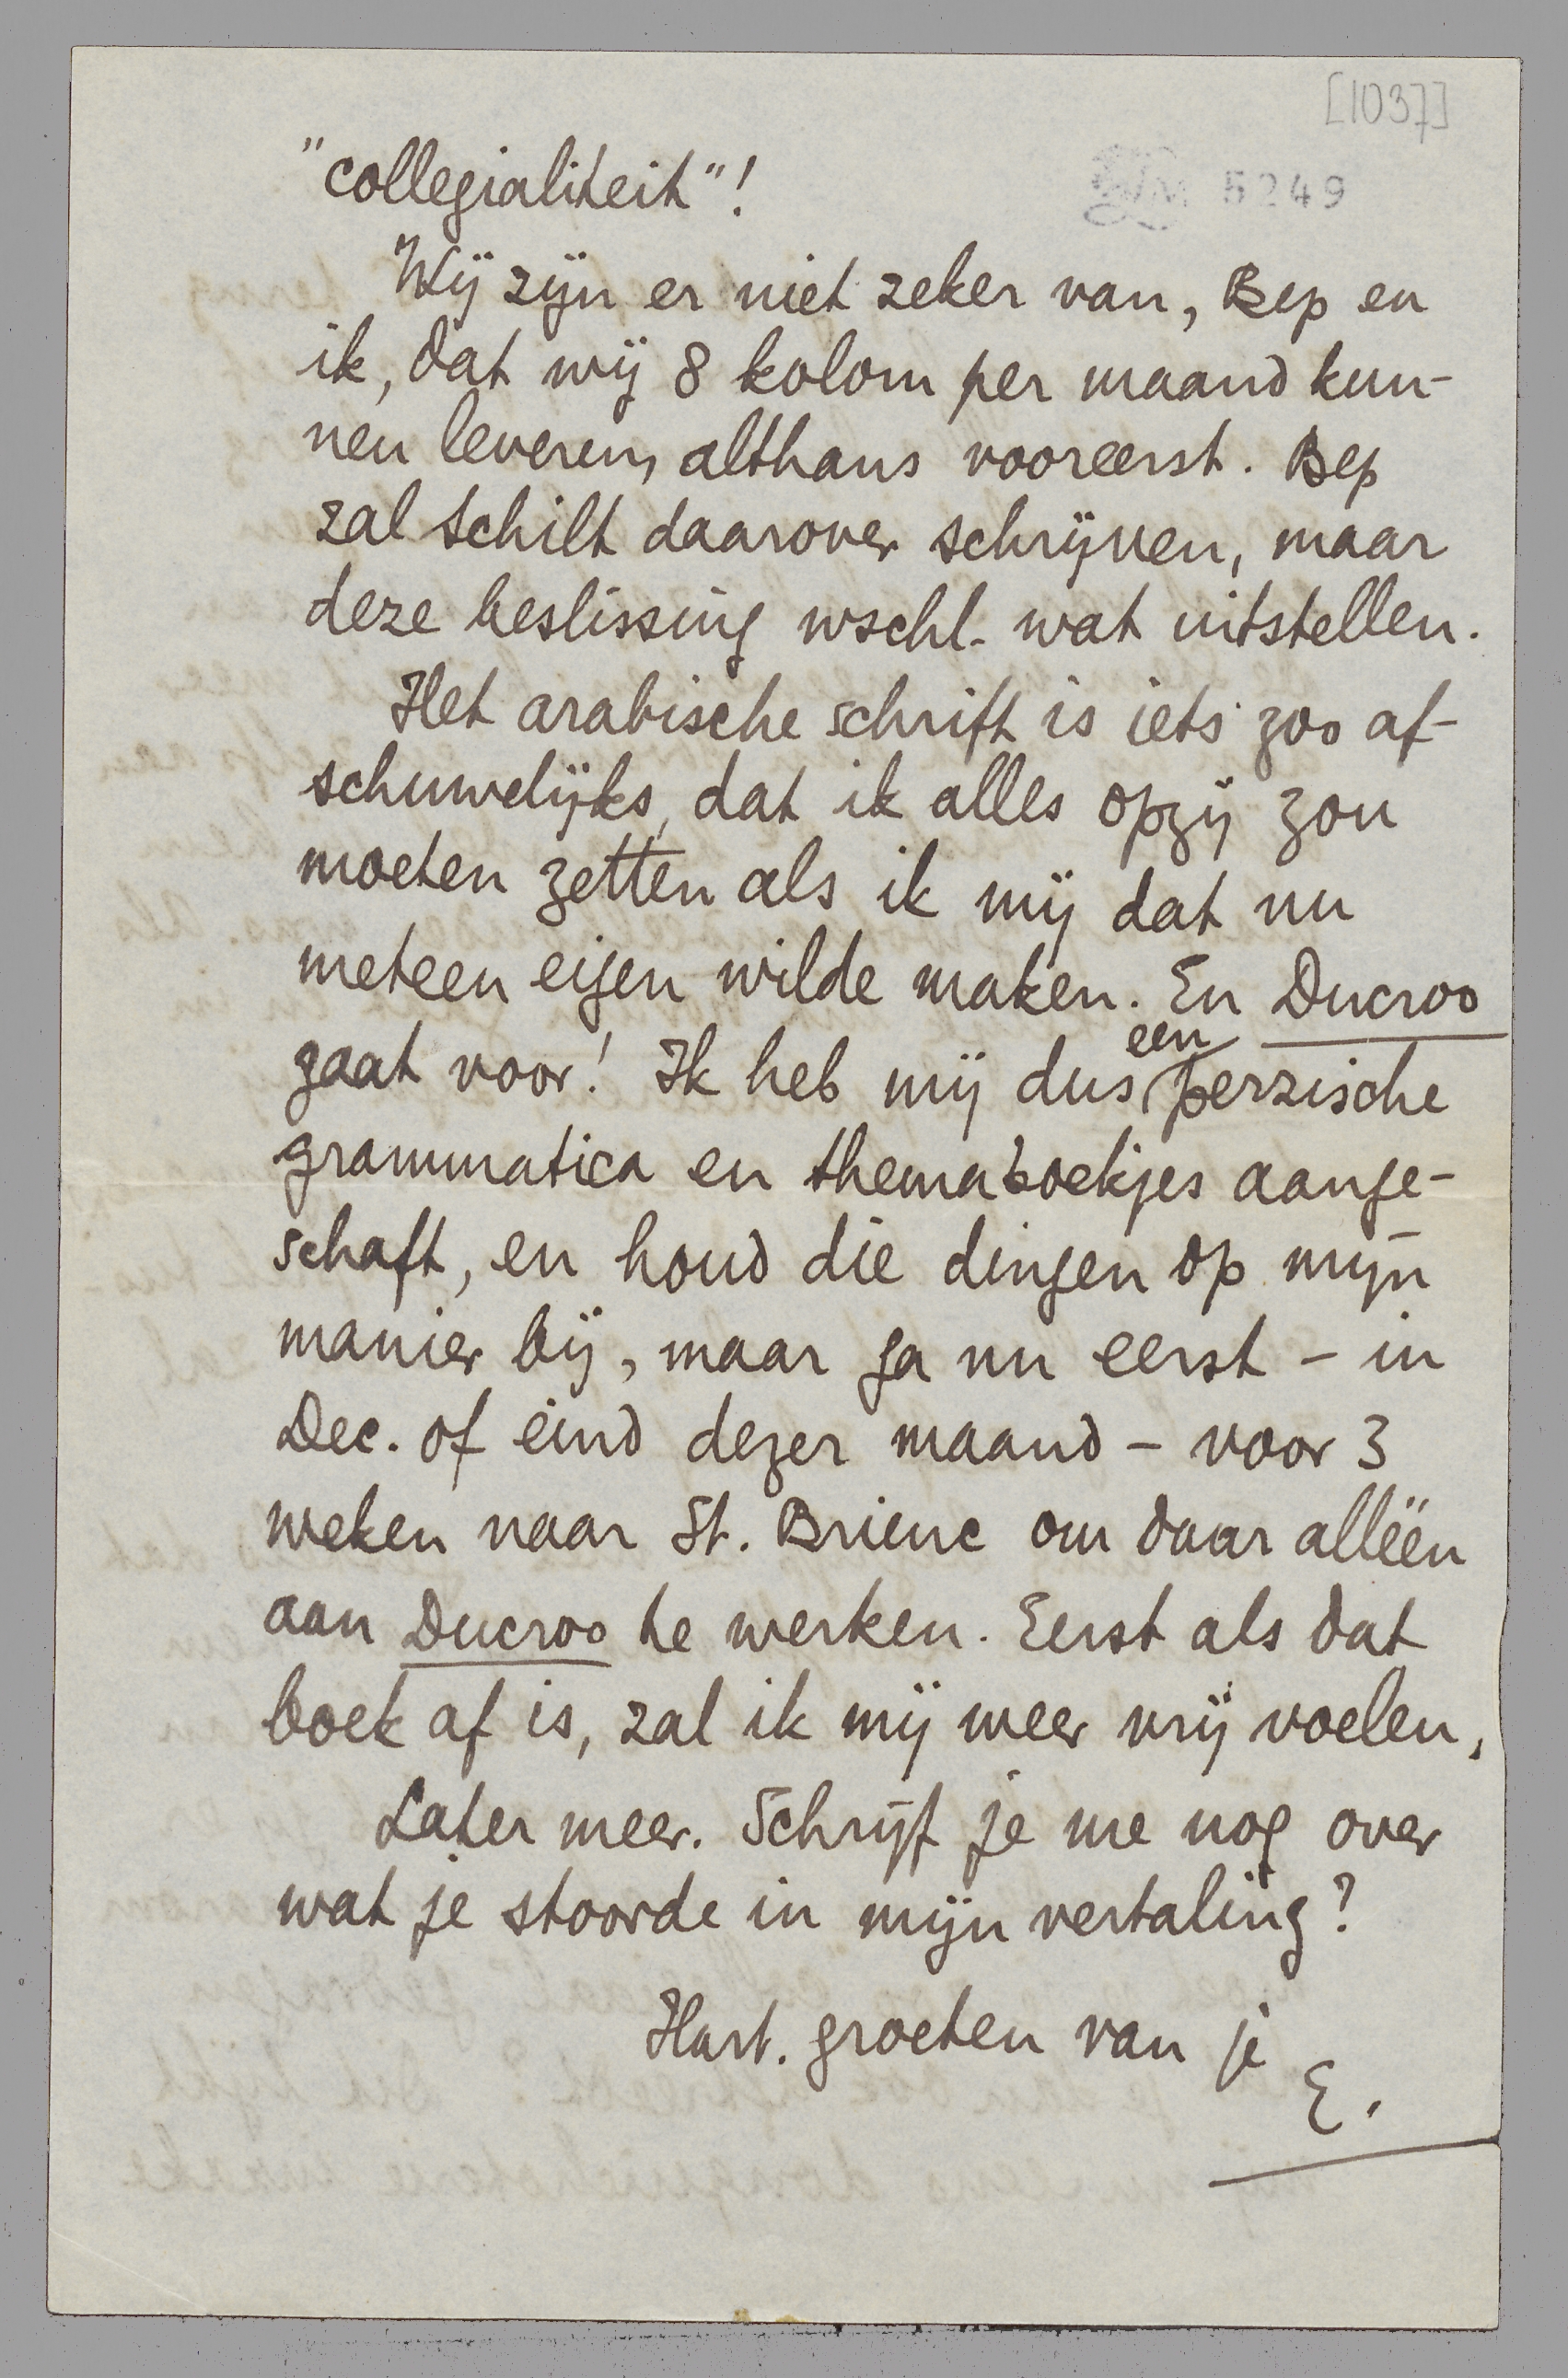 [1037]
"collegialiteit"!
5249
Wij zijn er niet zeker van, Bep en
ik, dat wij 8 kolom per maand kun-
nen leveren, althans vooreerst. Bep
zal Schilt daarover schrijven, maar
deze beslissing wschl. wat uitstellen.
Het arabische schrift is iets zoo af-
schuwelijks, dat ik alles opzij zou
moeten zetten als ik mij dat nu
meteen eigen wilde maken. En Ducroo
gaat voor! Ik heb mij dus een perzische
grammatica en themaboekjes aange-
schaft, en houd die dingen op mijn
manier bij, maar ga nu eerst - in
Dec. of eind dezer maand - voor 3
weken naar St. Brieuc om daar alléén
aan Ducroo te werken. Eerst als dat
boek af is, zal ik mij weer vrij voelen.
Later meer. Schrijf je me nog over
wat je stoorde in mijn vertaling?
Hart. groeten van je
E.